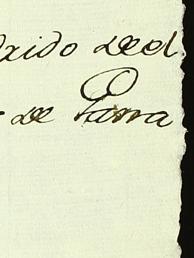 xido ded
de Parra